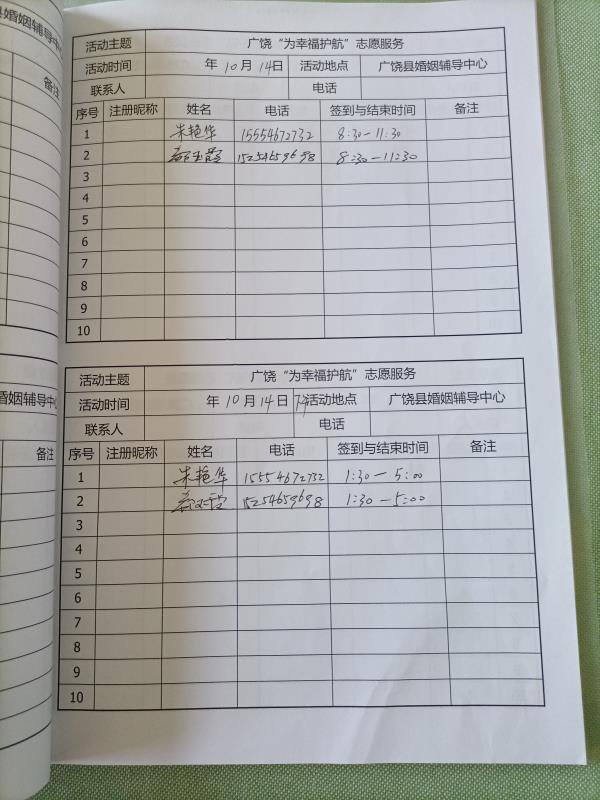 县婚姻辅导中心
备注
婚姻辅导中心
备注
活动主题 广饶“为幸福护航”志愿服务
活动时间 年 10 月 14 日 活动地点 广饶县婚姻辅导中心
联系人 电话
序号 注册昵称 姓名 电话 签到与结束时间 备注
1 朱艳华 15554672732 8:30-11:30
2 15254659698 8:30-11:30
3
4
5
6
7
8
9
10
活动主题 广饶“为幸福护航”志愿服务
活动时间 年 10 月 14 日 下午 活动地点 广饶县婚姻辅导中心
联系人 电话
序号 注册昵称 姓名 电话 签到与结束时间 备注
1 朱艳华 15554672732 1:30-5:00
2 15254659698 1:30-5:00
3
4
5
6
7
8
9
10